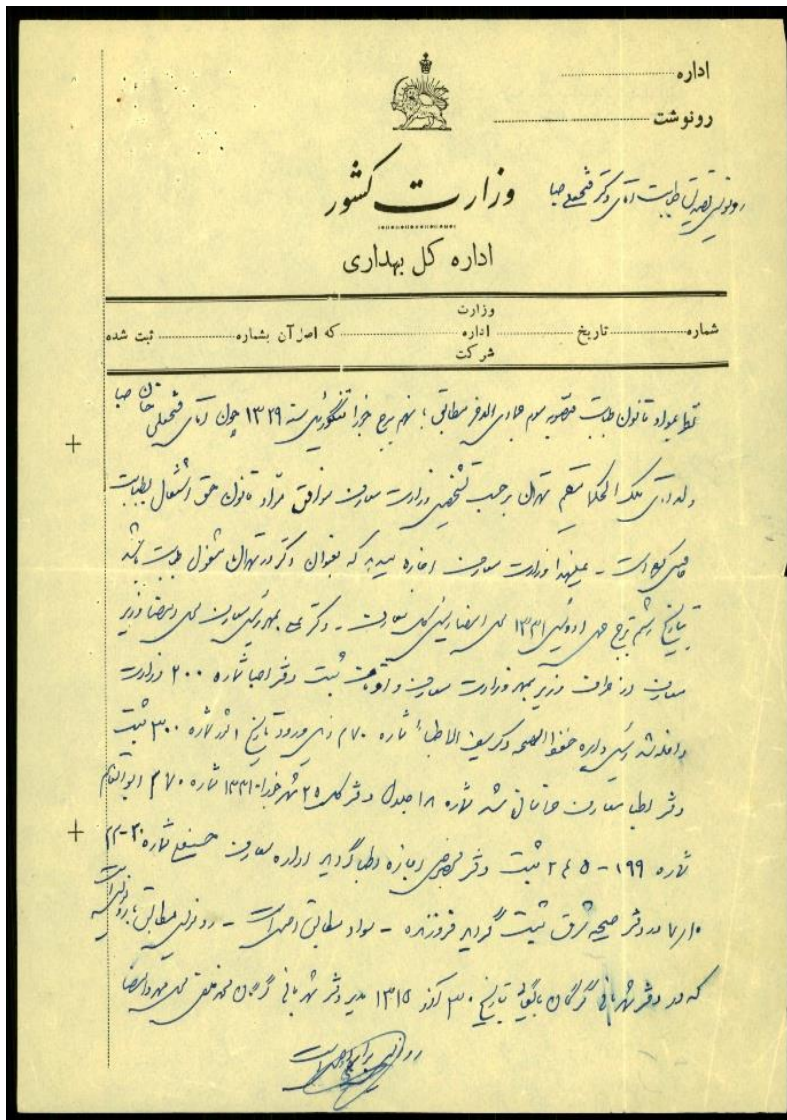 اداره
رونوشت
وزارت کشور
رونویس تصدیق طبابت آقای دکتر فتحعلی صبا
اداره کل بهداری
وزارت
شماره تاریخ اداره که اصل آن بشماره ثبت شده
شرکت
نظر بمواد قانون طبابت مصوبه سوم جمادی مطابق نهم برج جوزا تنگوزئیل سنه ۱۳۲۹ چون آقای فتحعلی خان صبا
ولد آقای ملک الحکما مقیم تهران برحسب تشخیص وزارت معارف موافق مواد قانون حق اشتغال بطبابت
است - علیهذا وزارت معارف اجازه میدهد که بعنوان دکتر در تهران مشغول طبابت باشد
بتاریخ ششم برج ۱۳۳۱ محل امضا رئیس کل معارف - دکتر محل امضا وزیر
معارف وزیر بمهر وزارت معارف و اوقاف ثبت دفتر اطبا شماره ۲۰۰ وزارت
داخله شد رئیس اداره حفظ الصحه دکتر الاطباء شماره ۷۰م ورود تاریخ شماره ۳۰۰ ثبت
دفتر اطبا معارف شد شماره ۱۸ جدول دفتر کل ۲۵ شهر ۱۳۳۱ شماره ۷۰م ابوالقاسم
شماره ۱۹۹ - ۲۴۵ ثبت دفتر اجازه اطبا گردید اداره معارف شماره
در دفتر صحیه شرق ثبت گردید فروزنده - سواد مطابق اصل است - رونویس مطابق رونویس است
که در دفتر شهربانی گرگان بتاریخ ۳۰ آذر ۱۳۱۵ مدیر دفتر شهربانی گرگان محل مهر و امضا
رونویس برابر اصل است